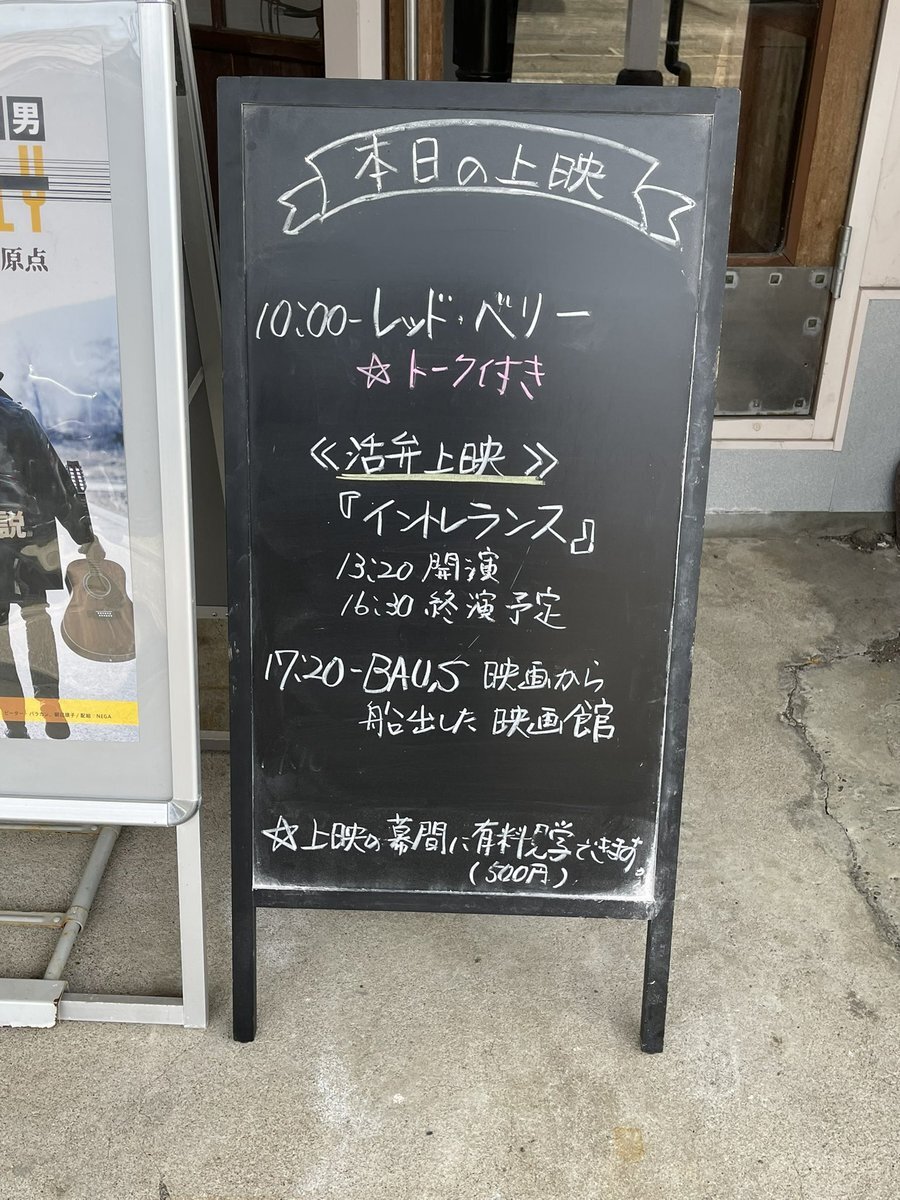 男
LY
原点
説
ピーター・バラカン、朝日順子/配給:NEGA
本日の上映
10:00-レッド・ベリー
☆トーク付き
≪活弁上映≫
『イントレランス』
13:20 開演
16:30 終演予定
17:20-BAUS 映画から
船出した 映画館
☆上映の幕間に有料見学できます。
(500円)